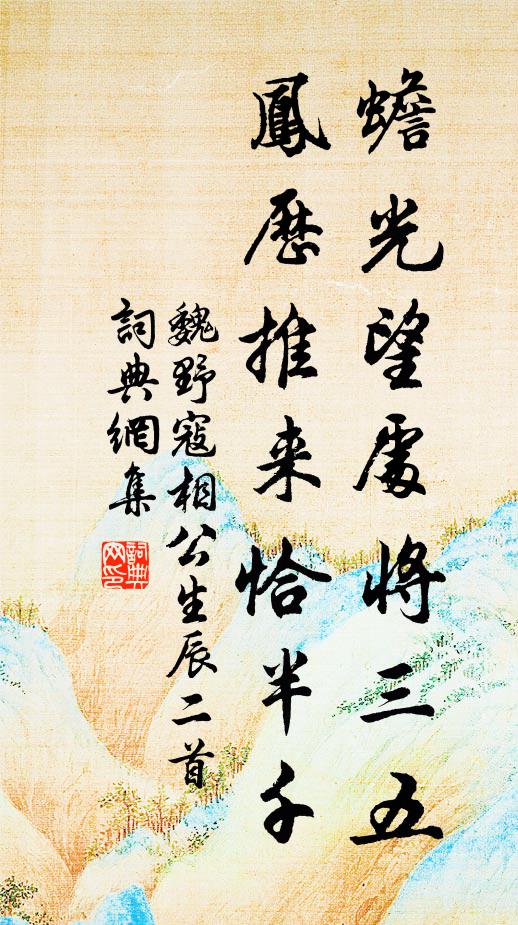 蟾光望處將三五
鳳歷推来恰半千
魏野寇相公生辰二首
詞典網集
詞典网印